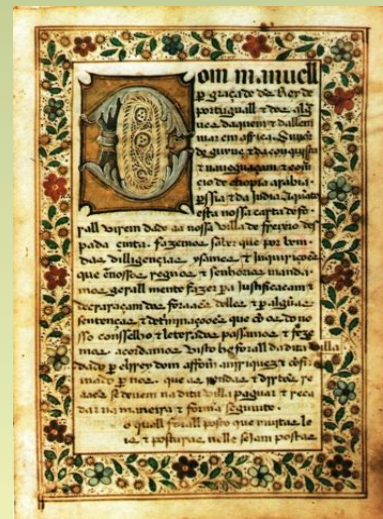 Dom manuell
p graça de ds Rey de
portugall z dos alg
ves daquem z dallem
mar em africa Senõr
de guinee z da conquista
z navegaçam z comer
cio de ethiopia arabia
persia z da India A quãtos
esta nossa carta de fo
rall virem dado aa nossa villa de freixo des
pada cinta. fazemos saber que por bem
das diligencias ysames z Inquiriçoões
que em nossos regnos z senhorios manda
mos gerall mente fazer pa Justificaçam z
decraraçam dos foraaes delles z p algũas
sentenças z detriminaçoões que cõ os do no
sso consselho z leterados passamos z feze
mos acordamos visto ho forall da dita villa
dado p elrrey dom affom anrriquez z cõfir
mado p nos. que as rendas z dirtos re
aaes se devem na dita villa paguar z reca
dar na maneira z forma seguinte.
o quall forall posto que muitas le
is z posturas nelle sejam postas